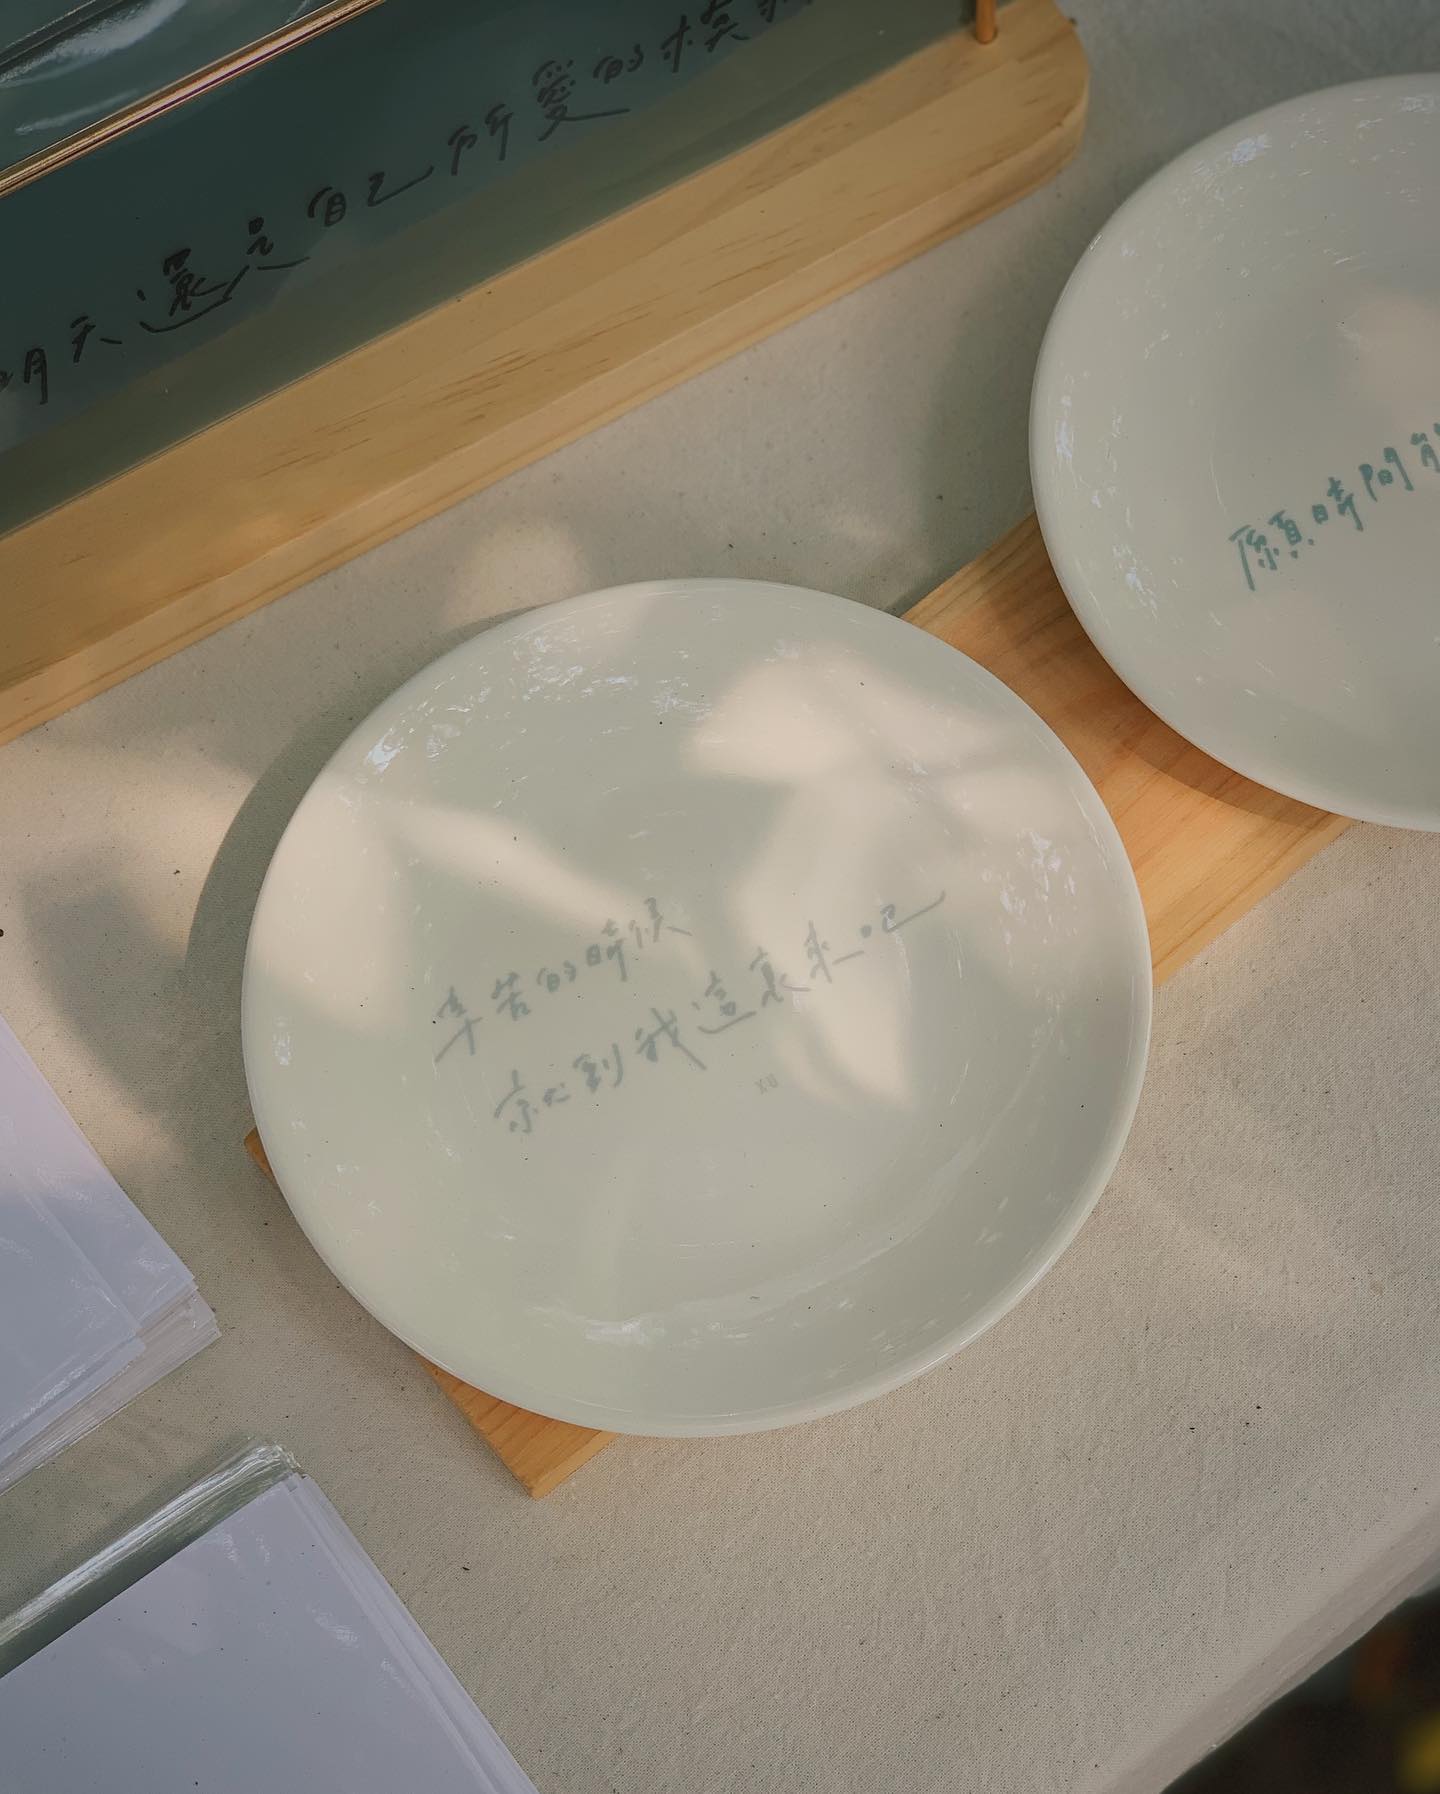 明天還是自己所愛的模
願時間
辛苦的時候
就到我這裏來吧
XU